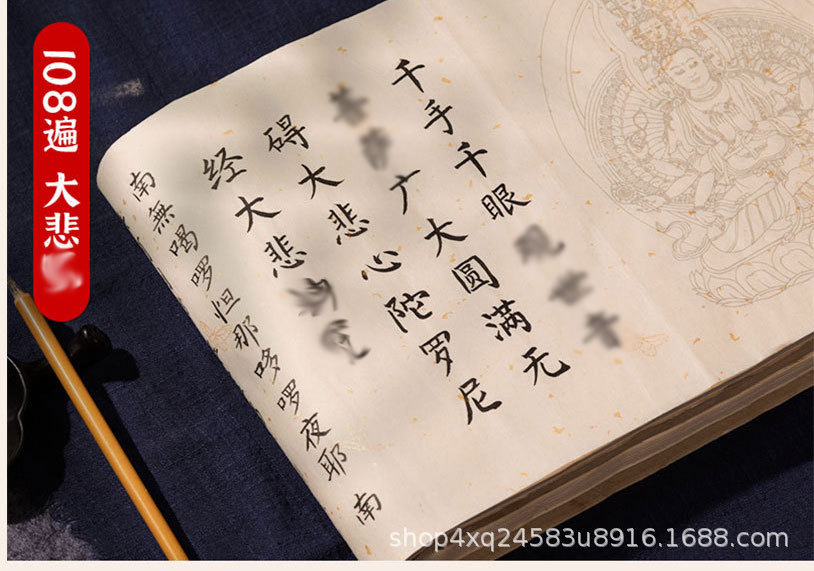 108遍 大悲
千手千眼
广大圆满无
碍大悲心陀罗尼
经大悲
南無喝啰怛那哆啰夜耶 南
shop4xq24583u8916.1688.com